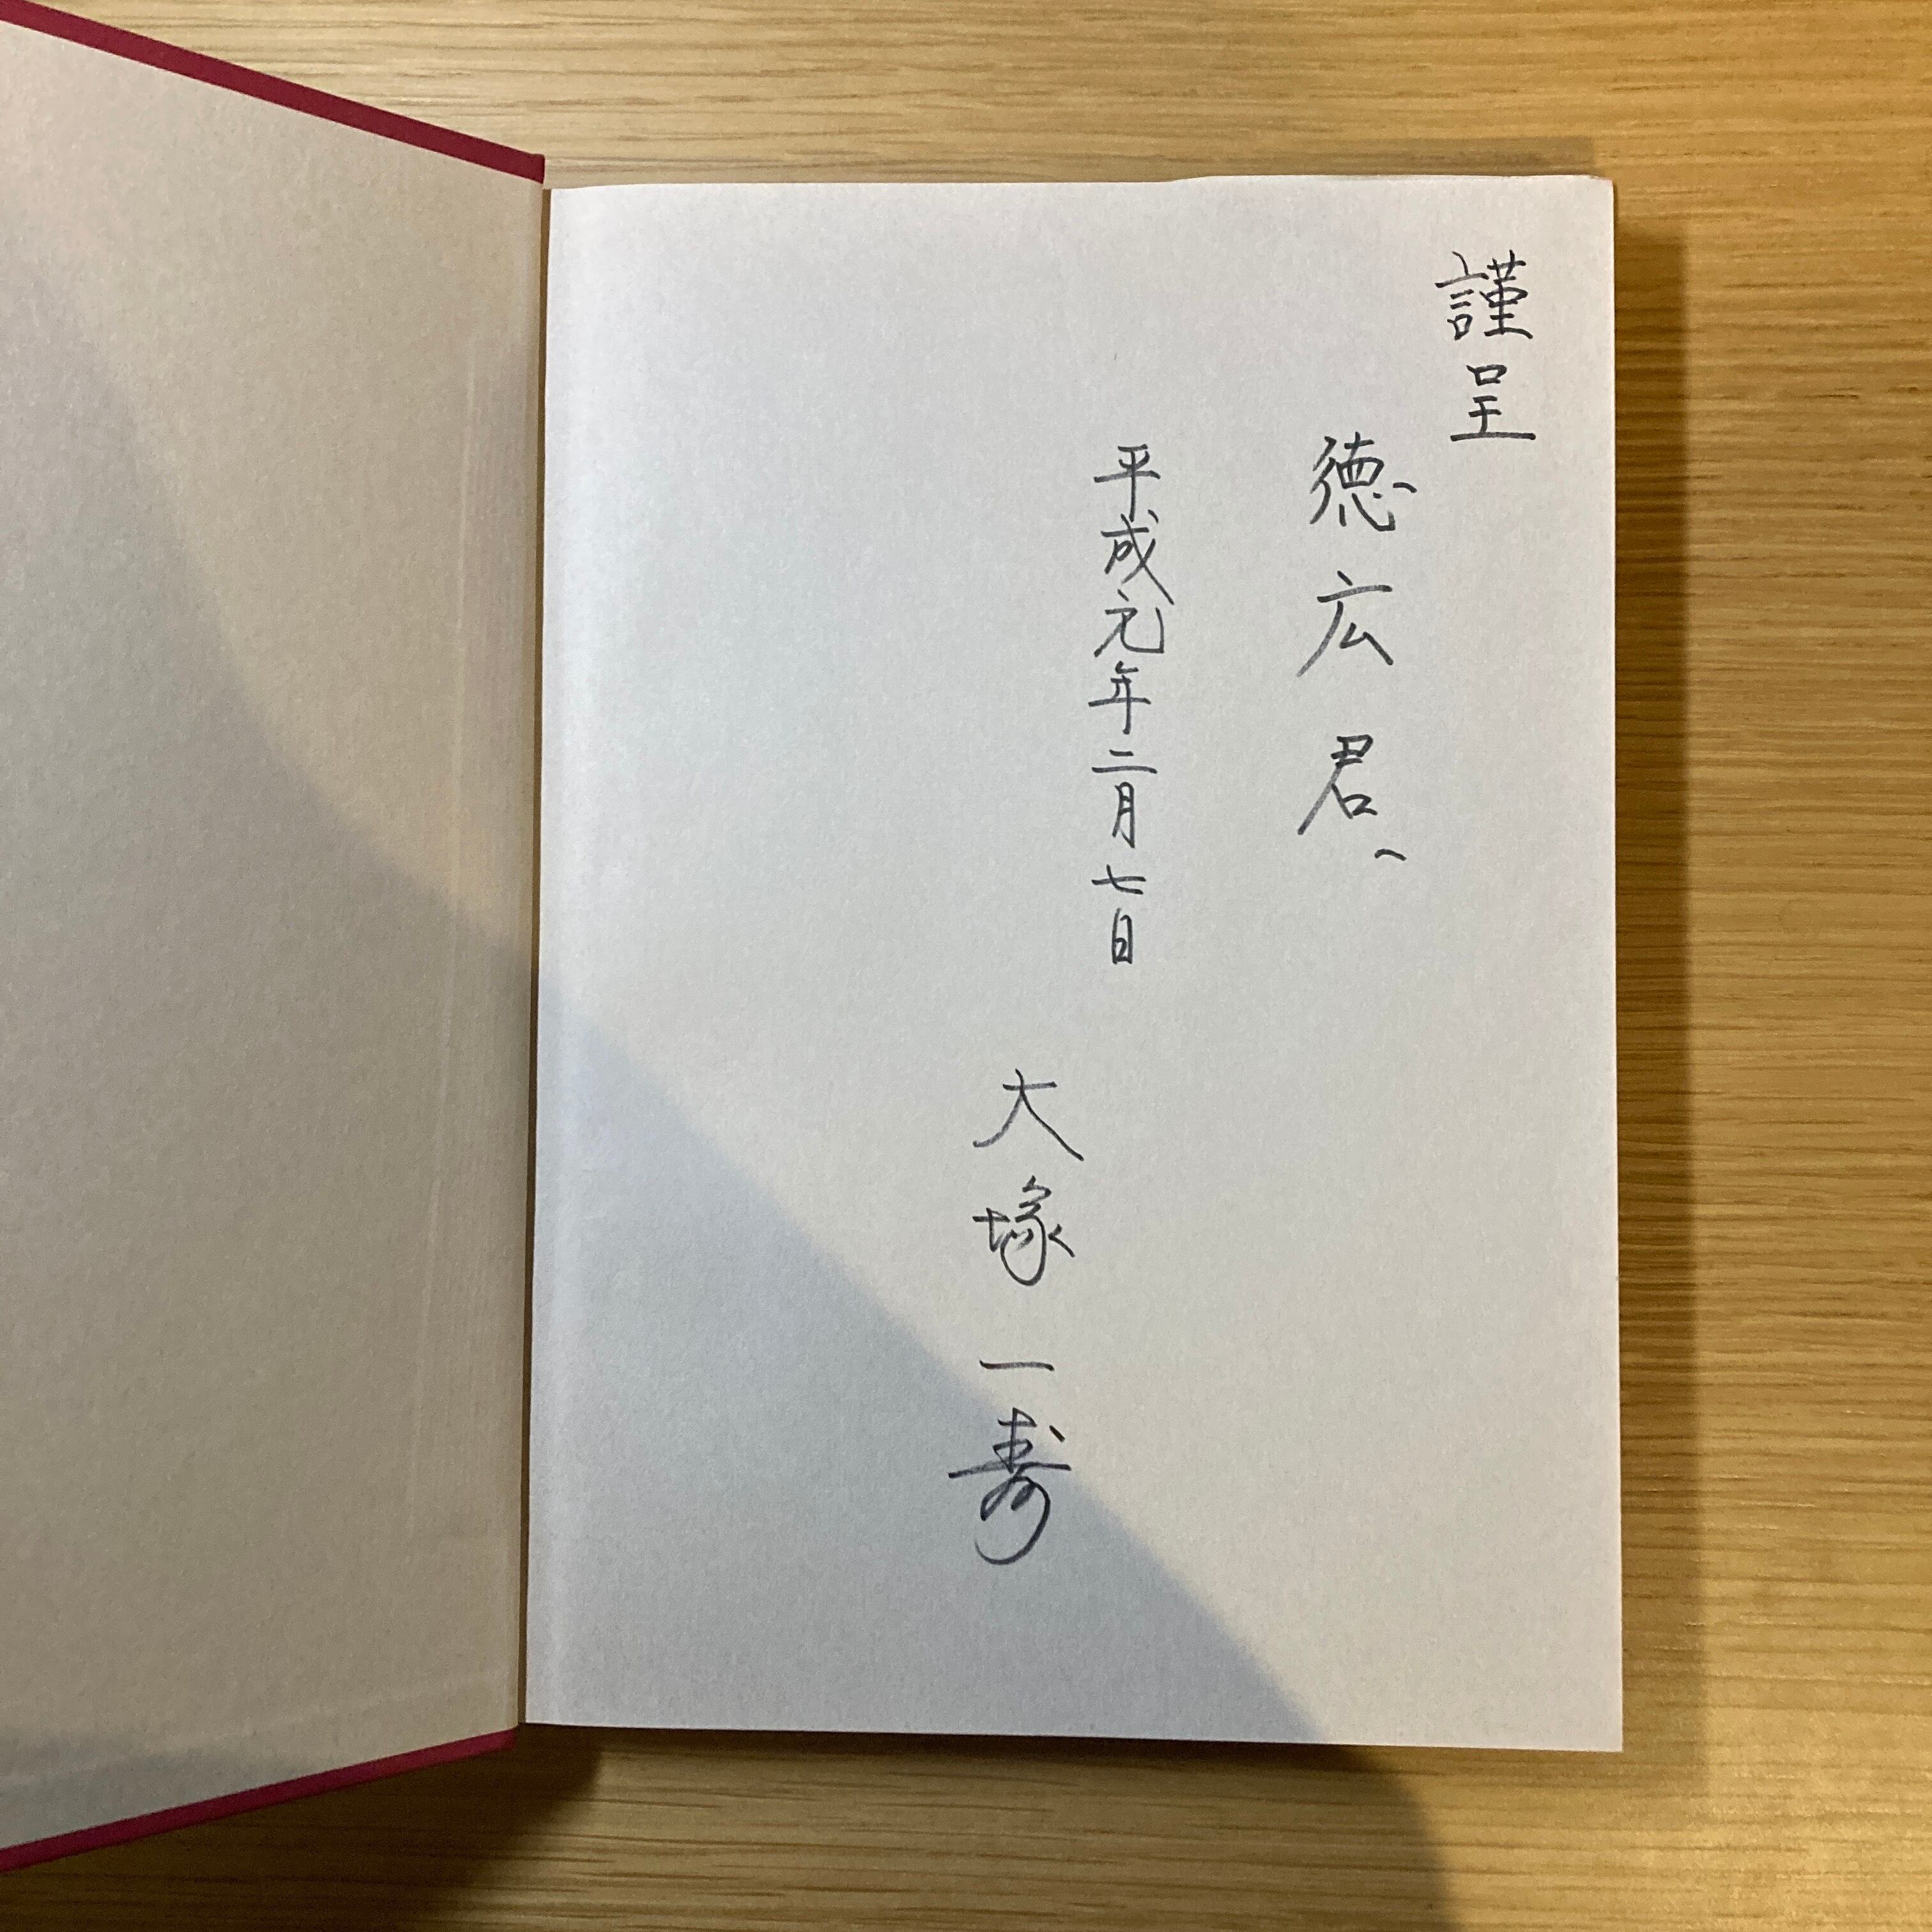 謹呈
徳広君、
平成元年二月七日
大塚一寿